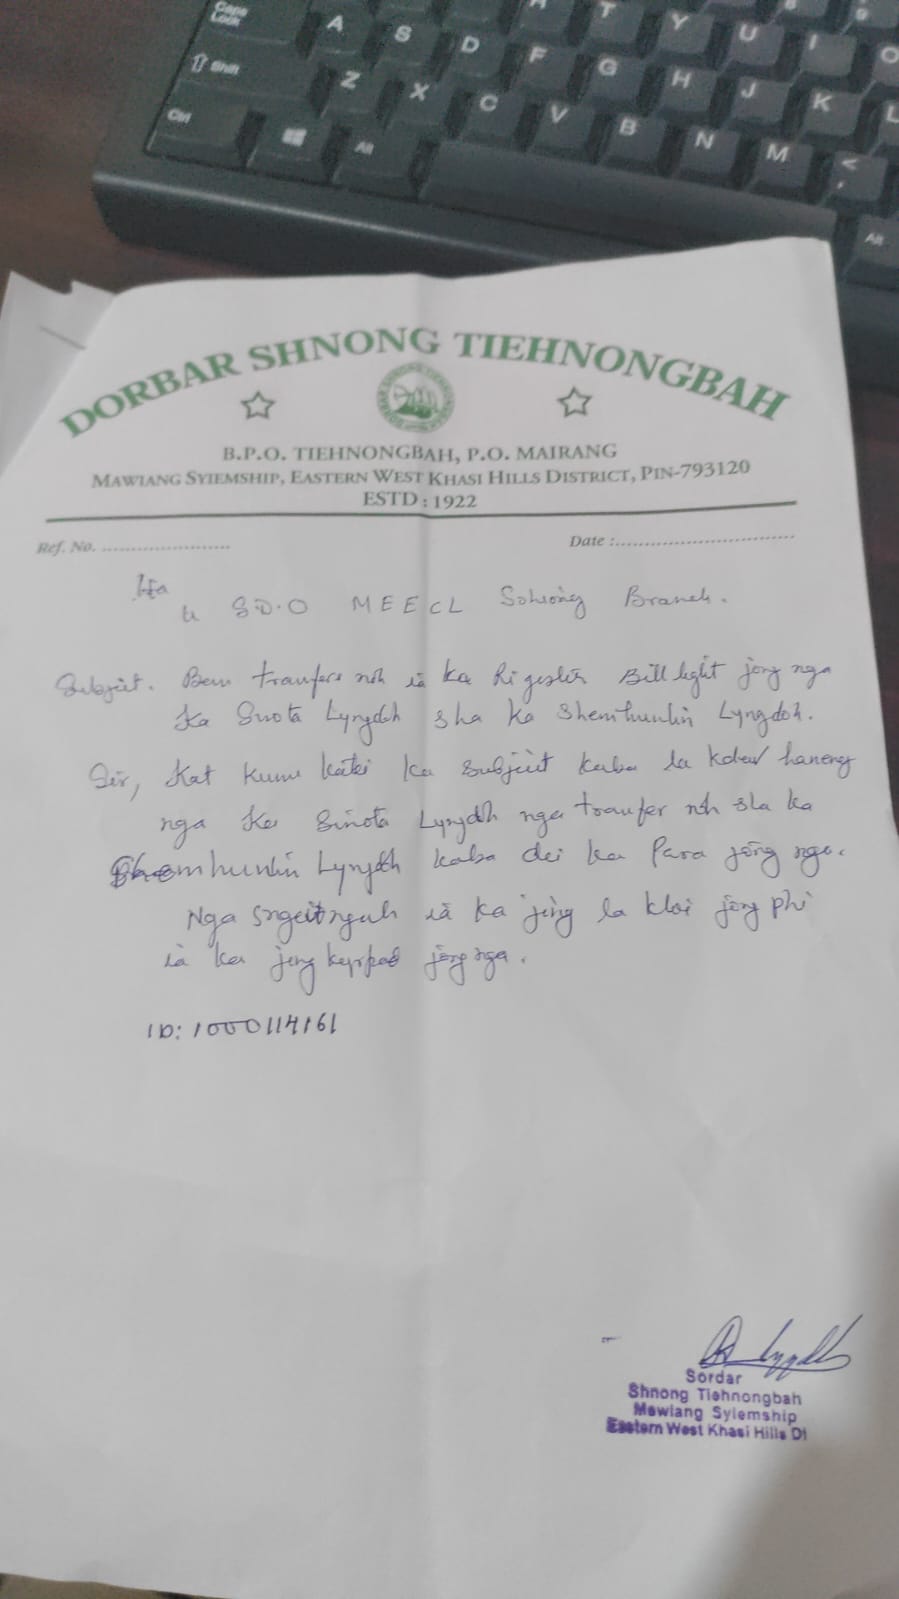 Caps Lock A S D F G H J K L
T Y U I O
Shift Z X C V B N M < ,
Ctrl Alt Alt
DORBAR SHNONG TIEHNONGBAH
B.P.O. TIEHNONGBAH, P.O. MAIRANG
MAWIANG SYIEMSHIP, EASTERN WEST KHASI HILLS DISTRICT, PIN-793120
ESTD : 1922
Ref. No. ........................
Date :..............................
Ha
u S.D.O MEECL Sohiong Branch.
Subject. Ban transfer noh ia ka Rigester Bill light jong nga
Ka Sinota Lyngdoh sha ka Shemhunlin Lyngdoh.
Sir, Kat kum katei ka subject kaba la kdew haneng
nga Ka Sinota Lyngdoh nga tranfer noh sha ka
Shemhunlin Lyngdoh kaba dei ka Para jong nga.
Nga sngewnguh ia ka jing la kloi jong phi
ia ka jing kyrpad jong nga.
ID: 1000114161
Sordar
Shnong Tiehnongbah
Mawiang Syiemship
Eastern West Khasi Hills Di